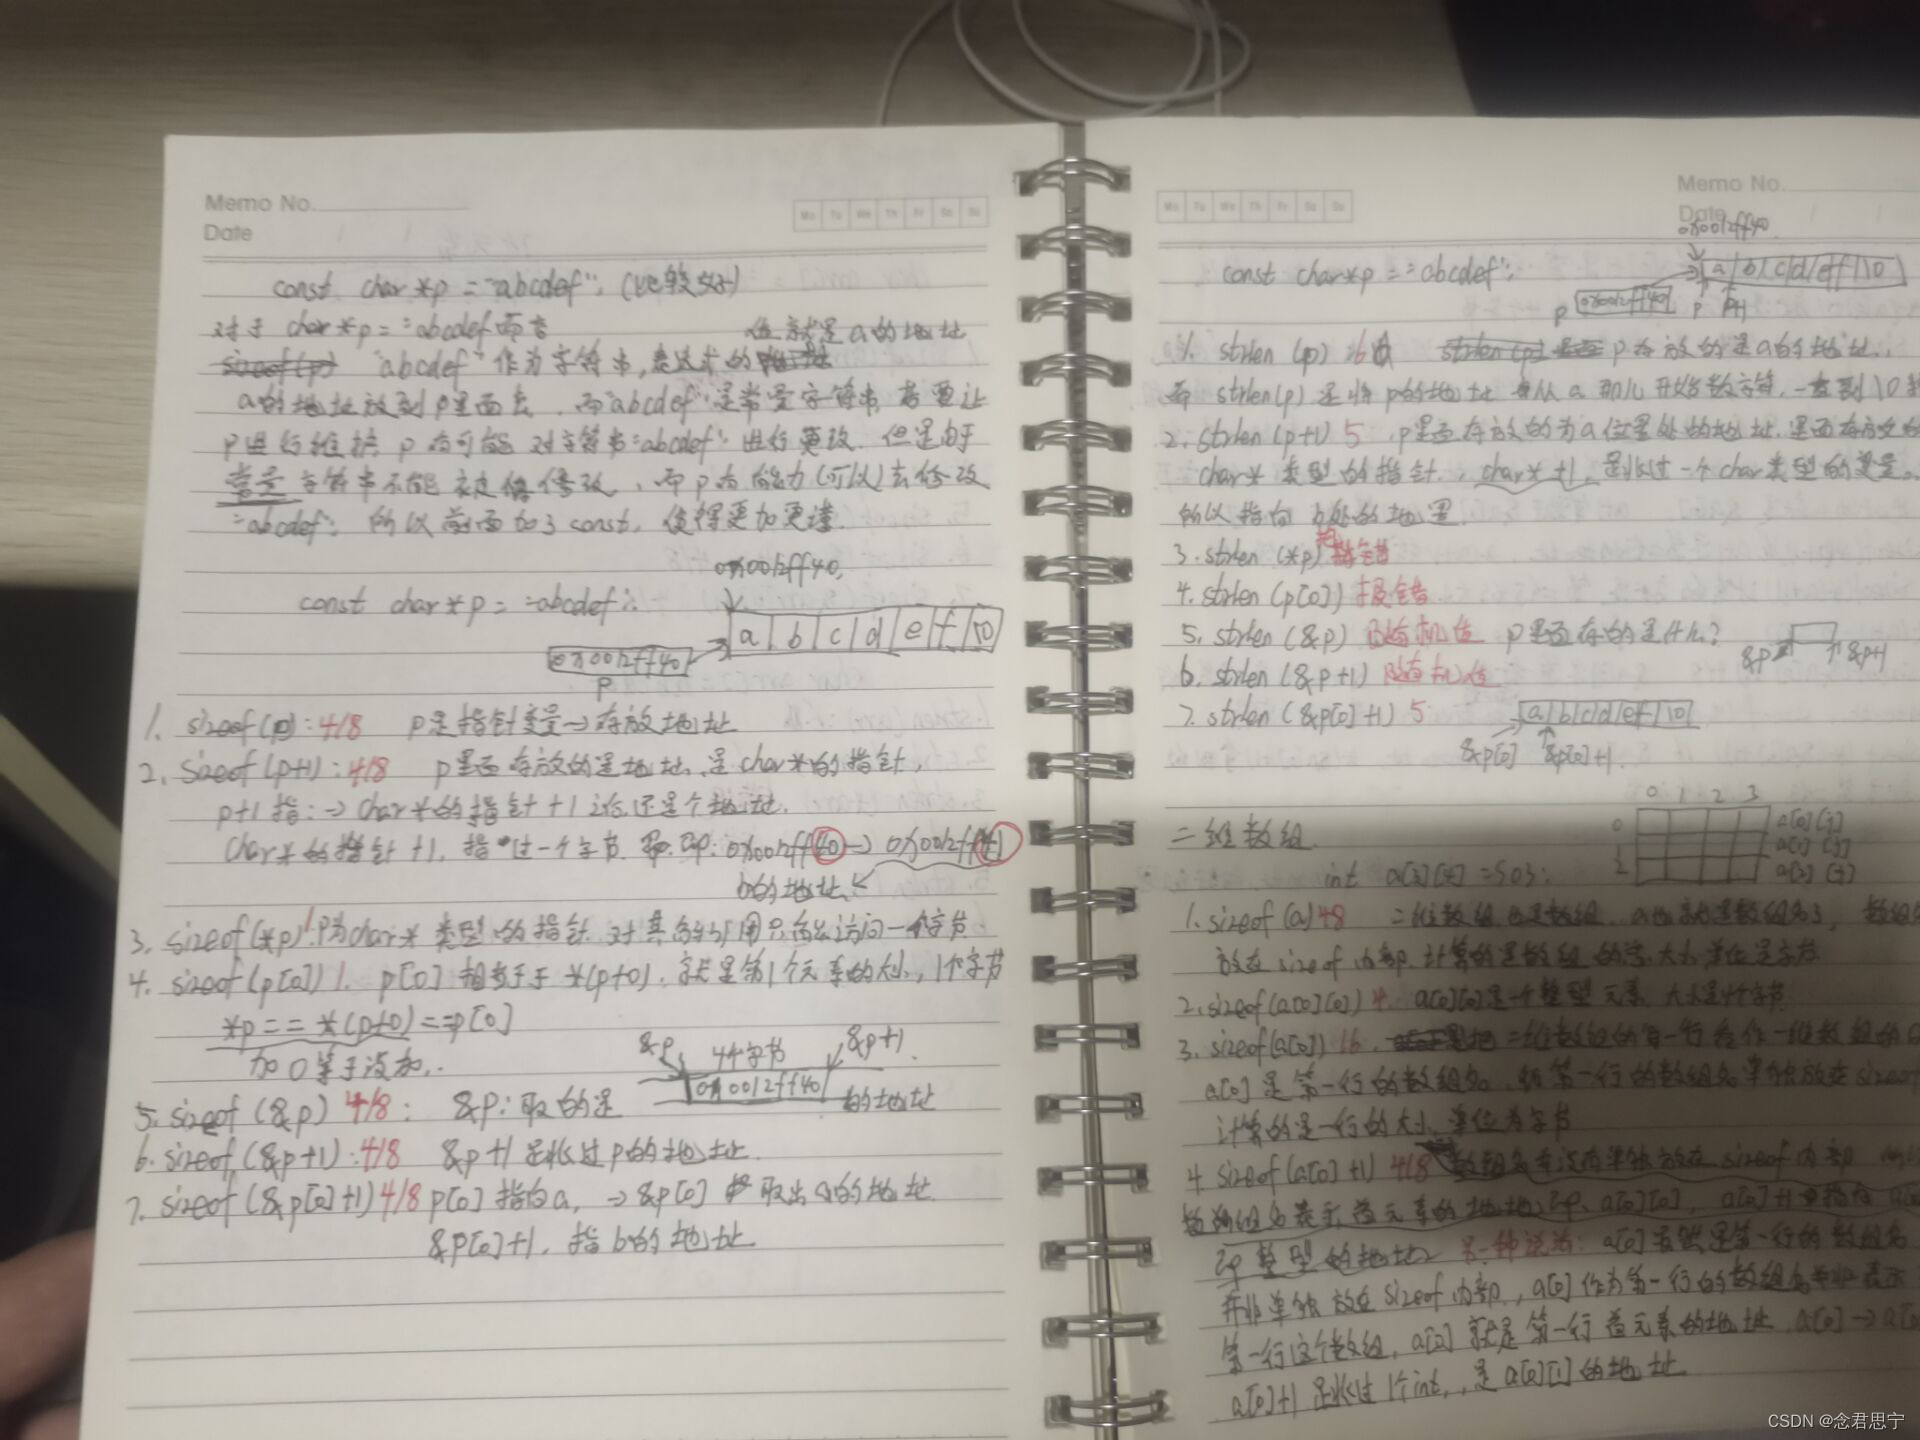 Memo No.
Date
Mo Tu We Th Fr Sa Su
const char *p = "abcdef";
对于 char *p = "abcdef 而言 值就是a的地址
sizeof(p) "abcdef" 作为字符串,表达式的
a的地址放到p里面去,而"abcdef"是常量字符串,若要让
p进行维护,p有可能对字符串"abcdef"进行更改,但是由于
常量字符串不能被修改,而p有能力(可以)去修改
"abcdef", 所以前面加了const,使得更加严谨.
0x0012ff40
const char *p = "abcdef";
a b c d e f \0
0x0012ff40
p
1. sizeof(p): 4/8 p是指针变量→存放地址
2. sizeof(p+1): 4/8 p里面存放的是地址,是char*的指针,
p+1指:→char*的指针+1 还是个地址.
char*的指针+1,指过一个字节 即: 0x0012ff40→0x0012ff41
b的地址
3. sizeof(*p) 1 p为char*类型的指针,对其解引用只能访问一个字节
4. sizeof(p[0]) 1. p[0]相当于*(p+0),就是第1个元素的大小,1个字节
*p == *(p+0) == p[0]
加0等于没加.
&p 4个字节 &p+1
0x0012ff40
5. sizeof(&p) 4/8: &p:取的是 的地址
6. sizeof(&p+1): 4/8 &p+1是跳过p的地址.
7. sizeof(&p[0]+1) 4/8 p[0]指向a,→&p[0] 取出a的地址
&p[0]+1,指b的地址
Mo Tu We Th Fr Sa Su
Memo No.
Date
0x0012ff40
const char*p = "abcdef";
a b c d e f \0
p 0x0012ff40 p p+1
1. strlen(p) 6 strlen(p) p存放的是a的地址,
而strlen(p)是将p的地址 从a那儿开始数字符,一直到\0
2. strlen(p+1) 5 ,p里面存放的为a位置处的地址,里面存放的
char*类型的指针,char*+1,是跳过一个char类型的变量。
所以指向b处的地置
3. strlen(*p) 报错
4. strlen(p[0]) 报错
5. strlen(&p) 随机值 p里面存的是什么?
&p &p+1
6. strlen(&p+1) 随机值
7. strlen(&p[0]+1) 5
a b c d e f \0
&p[0] &p[0]+1
0 1 2 3
二维数组
0 a[0][j]
1 a[1][j]
2 a[2][j]
int a[3][4] = {0};
1. sizeof(a) 48 二维数组也是数组,a也就是数组名了,
放在sizeof内部,计算的是数组的总大小,单位是字节
2. sizeof(a[0][0]) 4 a[0][0]是一个整型元素,大小是4个字节
3. sizeof(a[0]) 16 二维数组的每一行看作一维数组
a[0]是第一行的数组名,把第一行的数组名单独放在sizeof
计算的是一行的大小,单位为字节
4. sizeof(a[0]+1) 4/8 数组名并没有单独放在sizeof内部
数组名表示首元素的地址,即a[0][0], a[0]+1指向
整型的地址 另一种说法: a[0]虽然是第一行的数组名
并非单独放在sizeof内部,a[0]作为第一行的数组名并非表示
第一行这个数组,a[0]就是第一行首元素的地址,
a[0]+1是跳过1个int,是a[0][1]的地址
CSDN @念君思宁